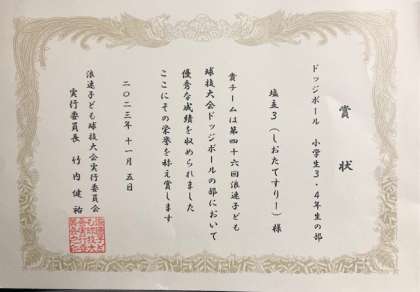 賞状
ドッジボール　小学生３・４年生の部
塩立３（しおたてすりー）様
貴チームは第四十六回浪速子ども
球技大会ドッジボールの部において
優秀な成績を収められました
ここにその栄誉を称え賞します
二〇二三年　十一月　五日
浪速子ども球技大会実行委員会
実行委員長　竹内　健祐